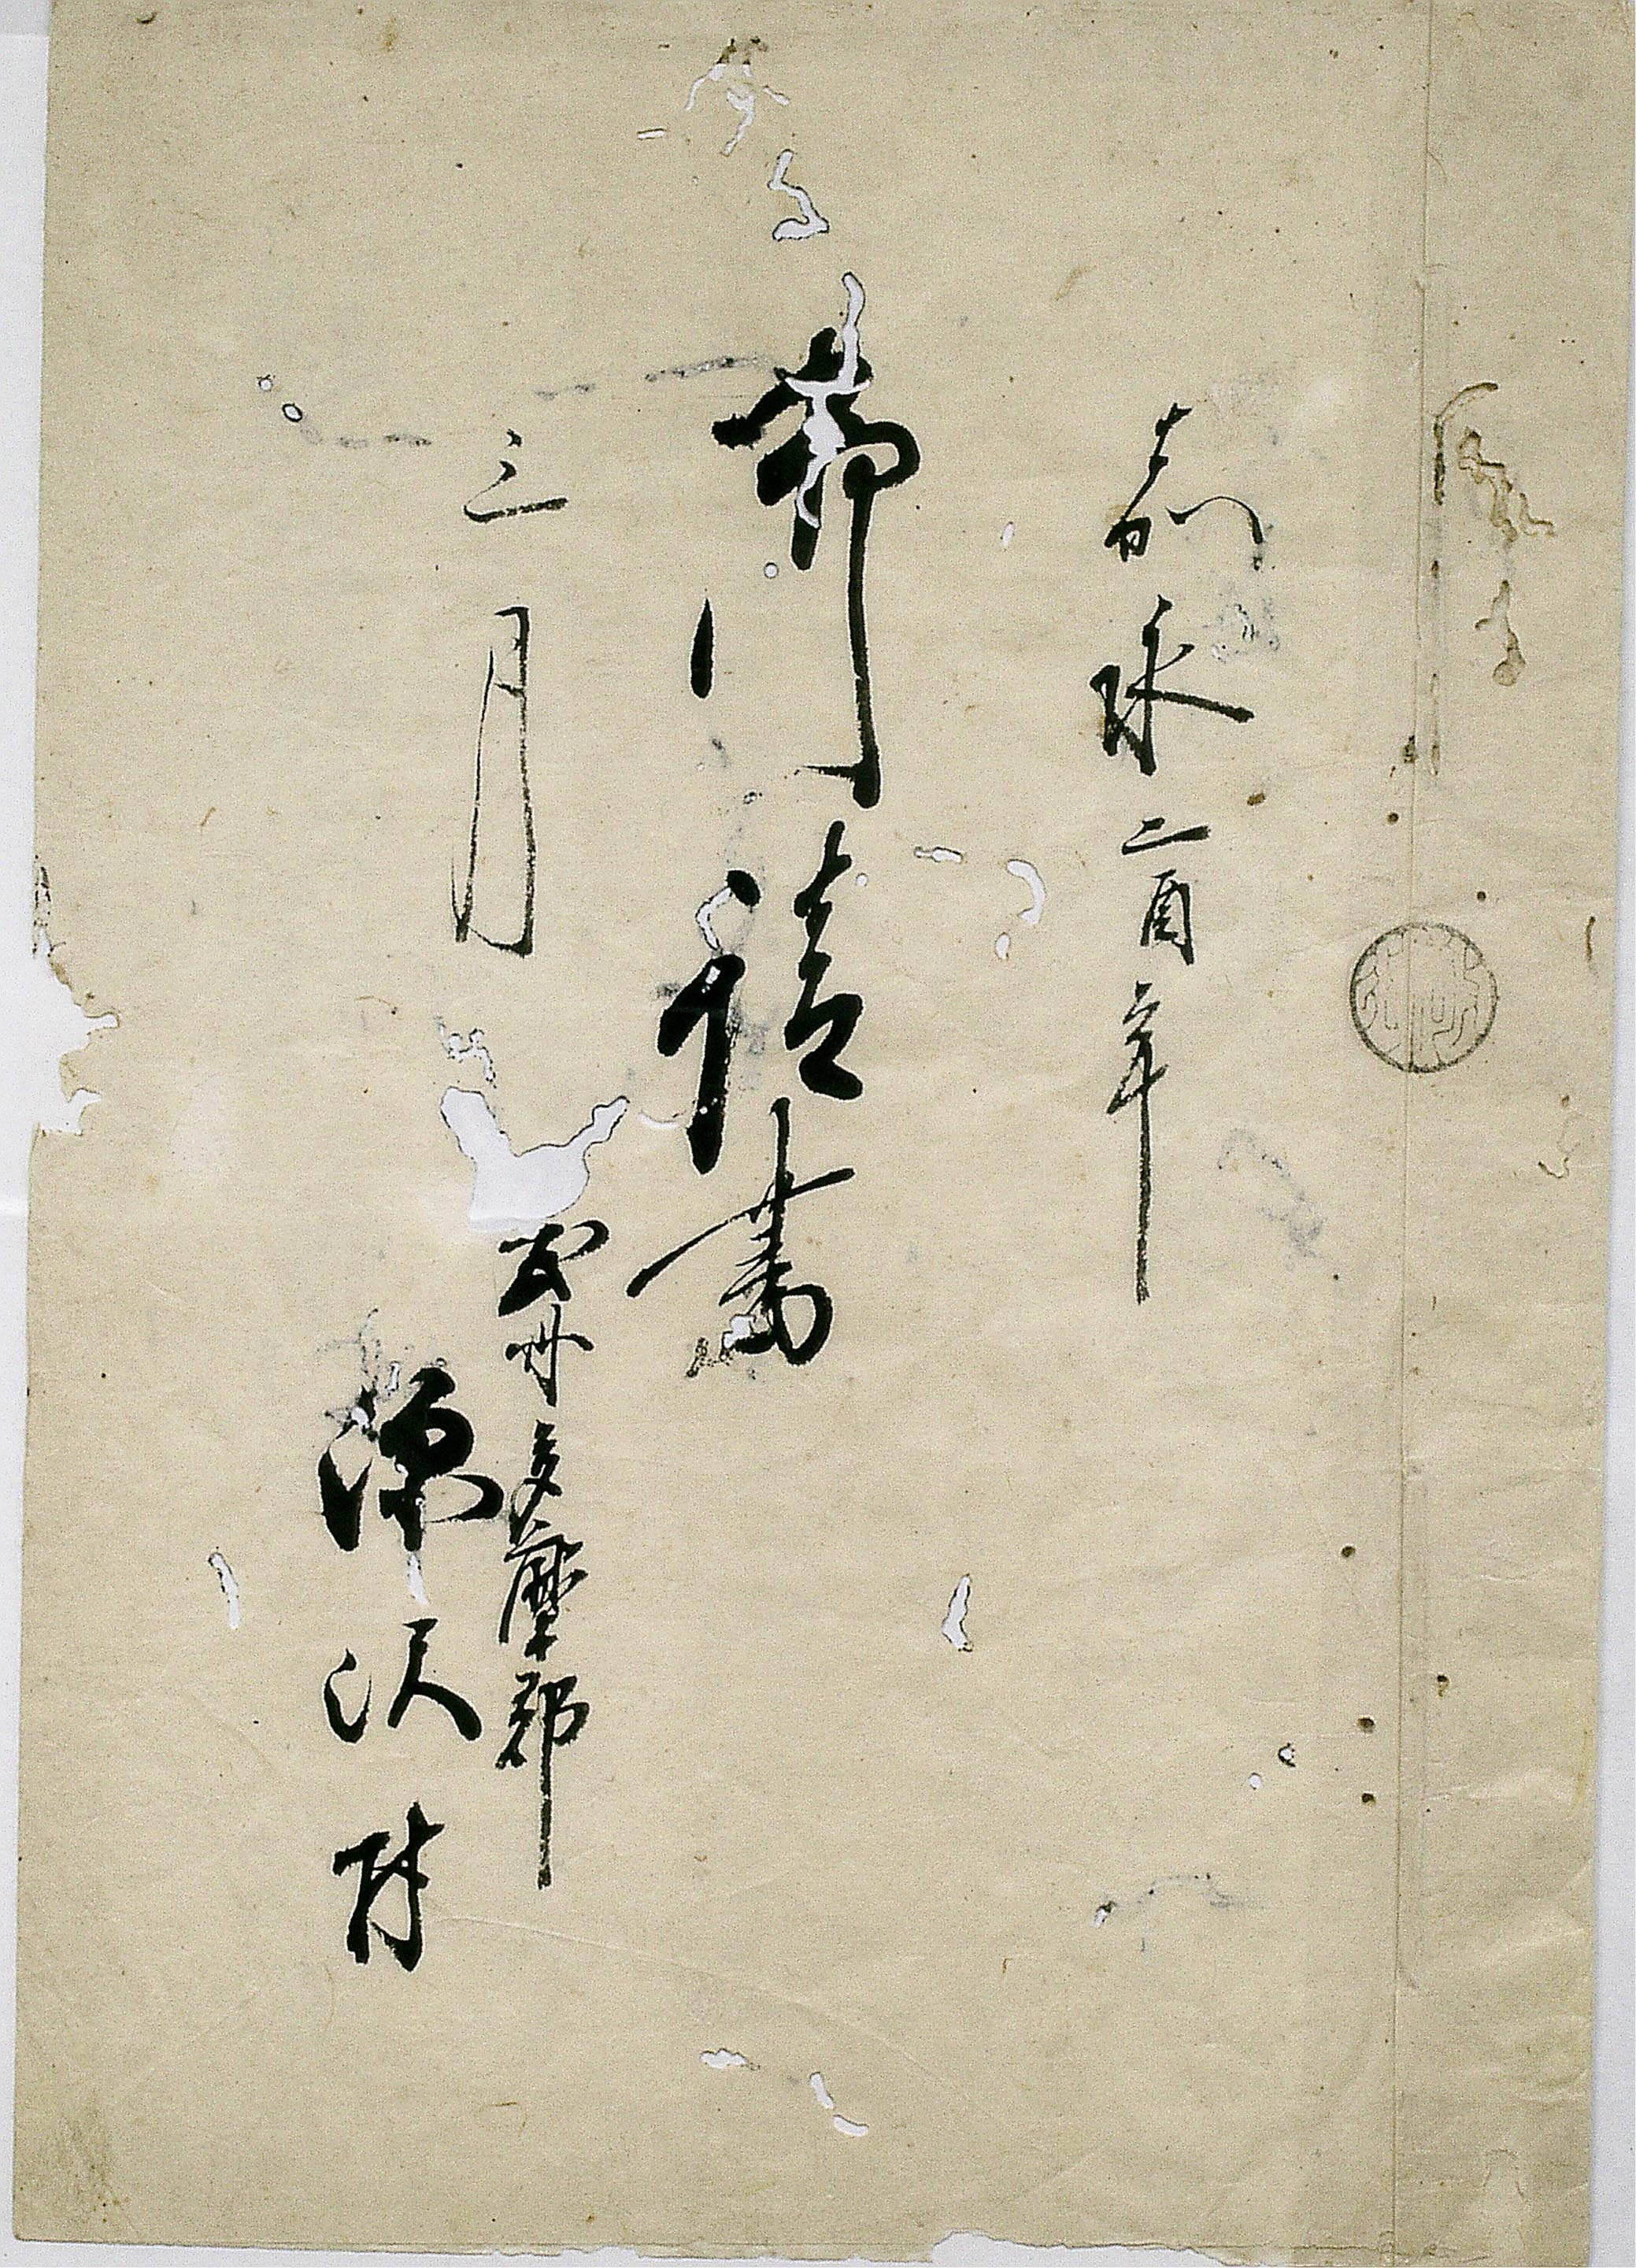 嘉永二酉年
書
三月
武州多摩郡
深沢村